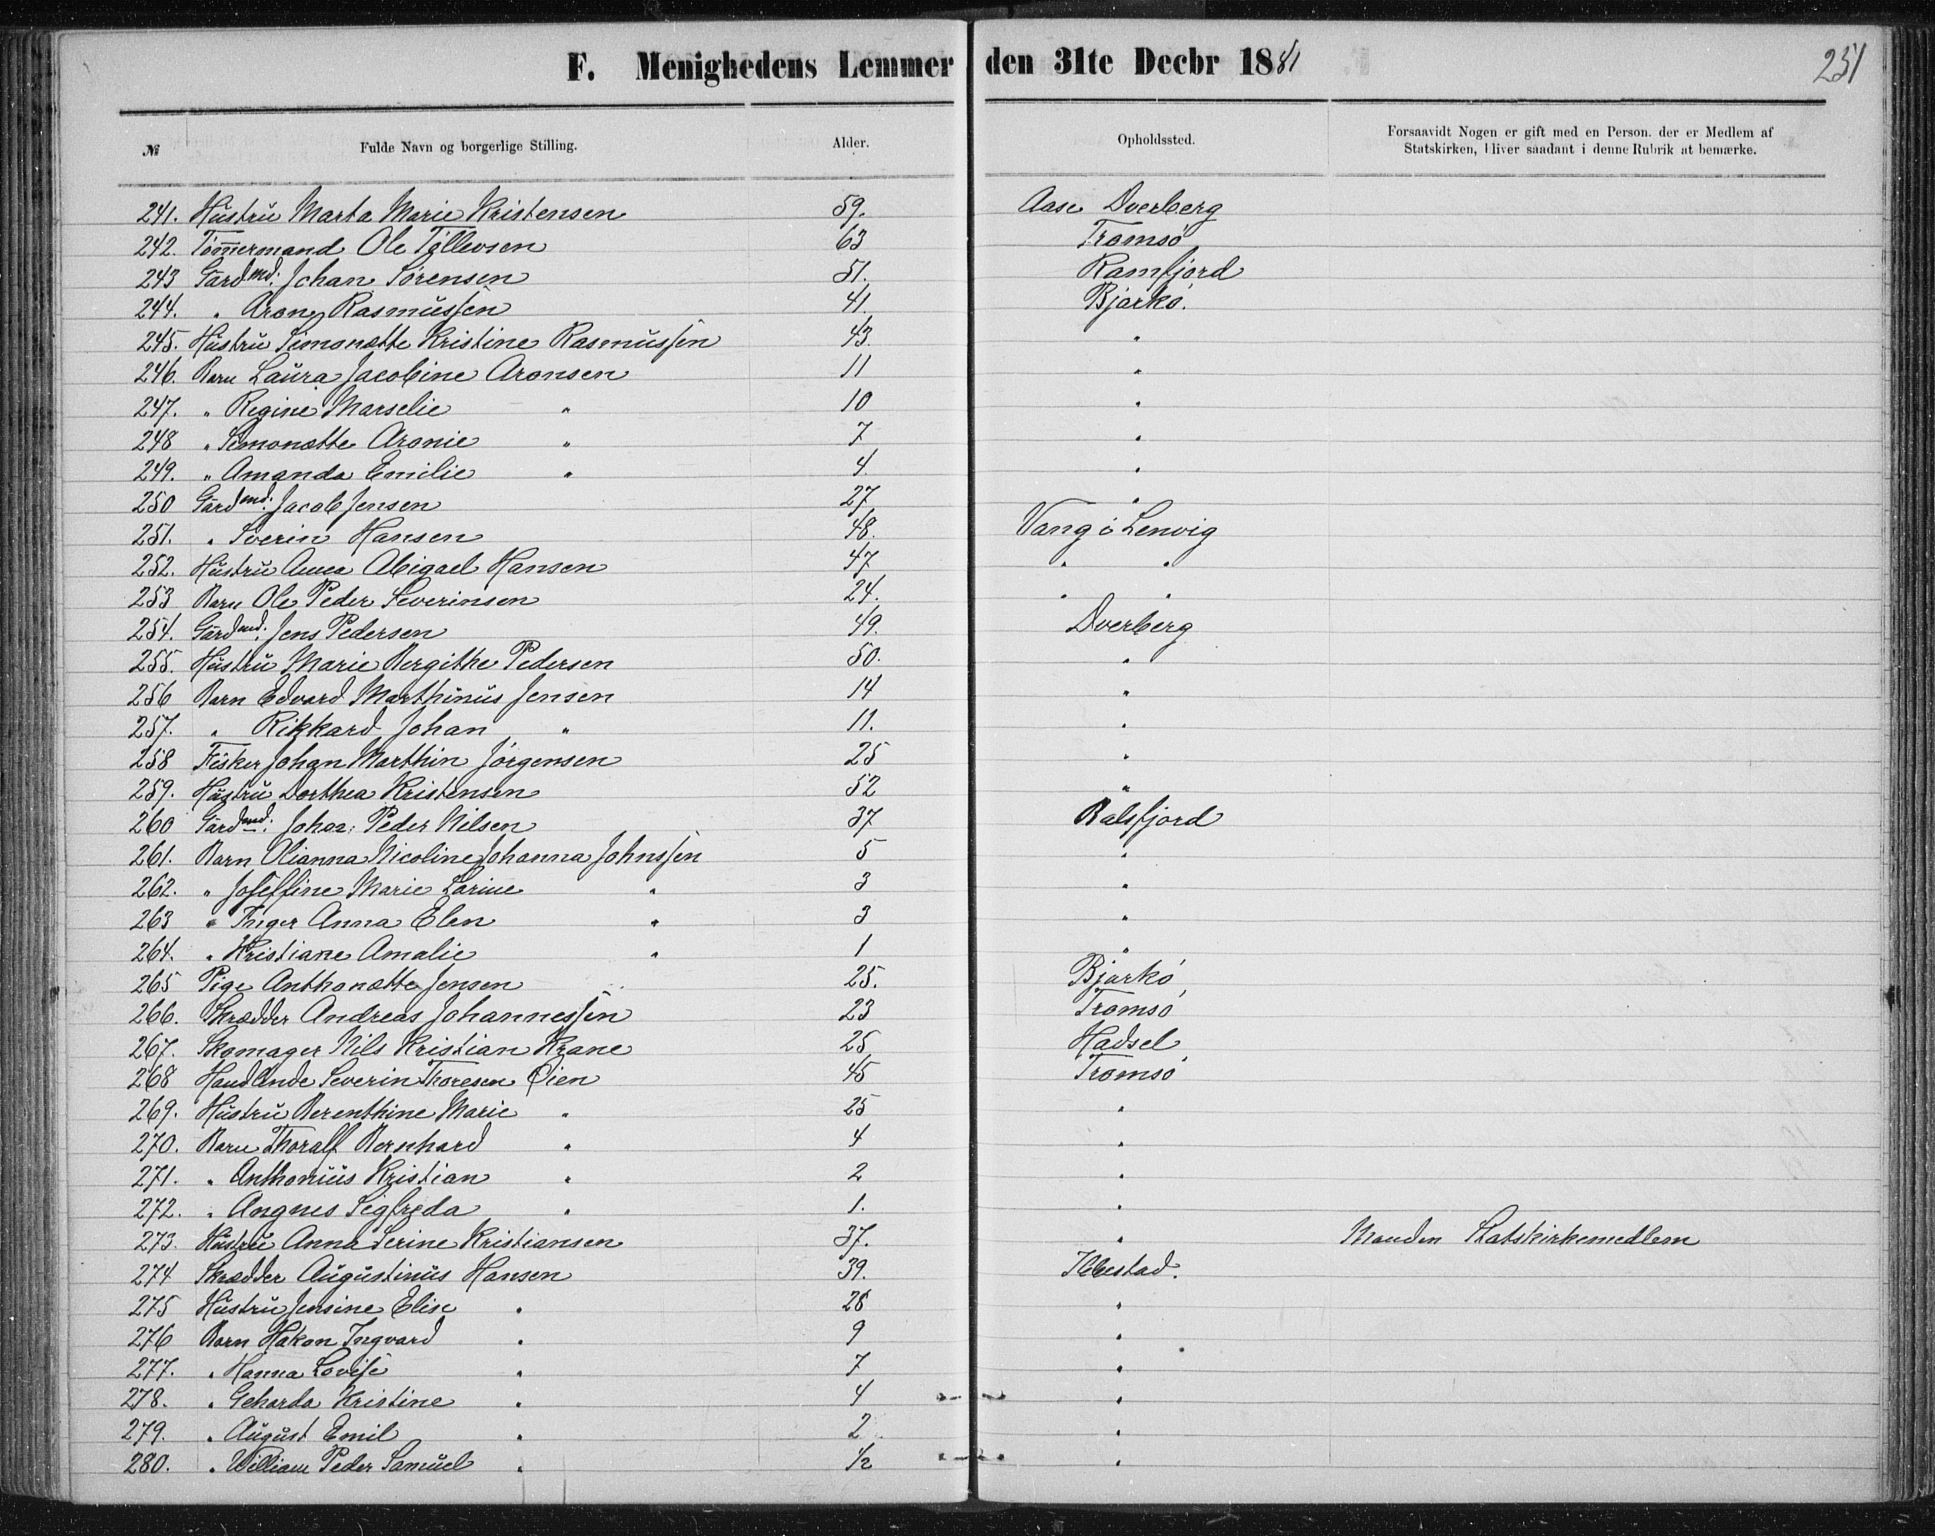 F. Menighedens Lemmer den 31te Decbr 1881 251
№ Fulde Navn og borgerlige Stilling. Alder. Opholdssted. Forsaavidt Nogen er gift med en Person, der er Medlem af
Statskirken, bliver saadant i denne Rubrik at bemærke.
241. Hustru Marta Marie Kristensen 59. Aase Dverberg
242. Tømmermand Ole Tøllevsen 63 Tromsø
243 Gårdmd. Johan Sørensen 51. Ramfjord
244. " Aron Rasmussen 41. Bjarkø.
245. Hustru Simonætte Kristine Rasmussen 43. "
246. Barn Laura Jacobine Aronsen 11 "
247. " Regine Marselie " 10 "
248 " Simonætte Aronie " 7 "
249. " Amanda Emilie " 4. "
250 Gårdmd. Jacob Jensen 27 "
251. " Sverin Hansen 48. Vang i Lenvig
252. Hustru Anna Abigael Hansen 47 " "
253 Barn Ole Peder Severinsen 24. " "
254. Gårdmd. Jens Pedersen 49. Dverberg
255. Hustru Marie Bergithe Pedersen 50. "
256 Barn Edvard Marthinus Jensen 14 "
257. " Rikkard Johan " 11. "
258 Fisker Johan Marthin Jørgensen 25 "
259. Hustru Dorthea Kristensen 52 "
260 Gårdmd. Johan Peder Nilsen 37 Balsfjord
261. Barn Olianna Nicoline Johanna Johnssen 5 "
262. " Joseffine Marie Larine " 3 "
263 " Inger Anna Elen " 3 "
264. " Kristiane Amalie " 1 "
265 Pige Anthonætte Jensen 25. Bjarkø
266. Skrædder Andreas Johannessen 23 Tromsø
267. Skomager Nils Kristian Krane 25 Hadsel
268 Handlende Severin Thoresen Øien 45 Tromsø
269. Hustru Berenthine Marie " 25 "
270. Barn Thoralf Bernhard " 4 "
271. " Anthonius Kristian " 2 "
272. " Angnes Sigfreda " 1. "
273. Hustru Anna Serine Kristiansen 37. " Manden Statskirkemedlem
274 Skrædder Augustinus Hansen 39. Ibbestad.
275 Hustru Jensine Elise " 28 "
276 Barn Hakon Ingvard " 9 "
277. " Hanna Lovise " 7 "
278. " Geharda Kristine " 4 "
279. " August Emil " 2 "
280. " William Peder Samuel " 1/2 "